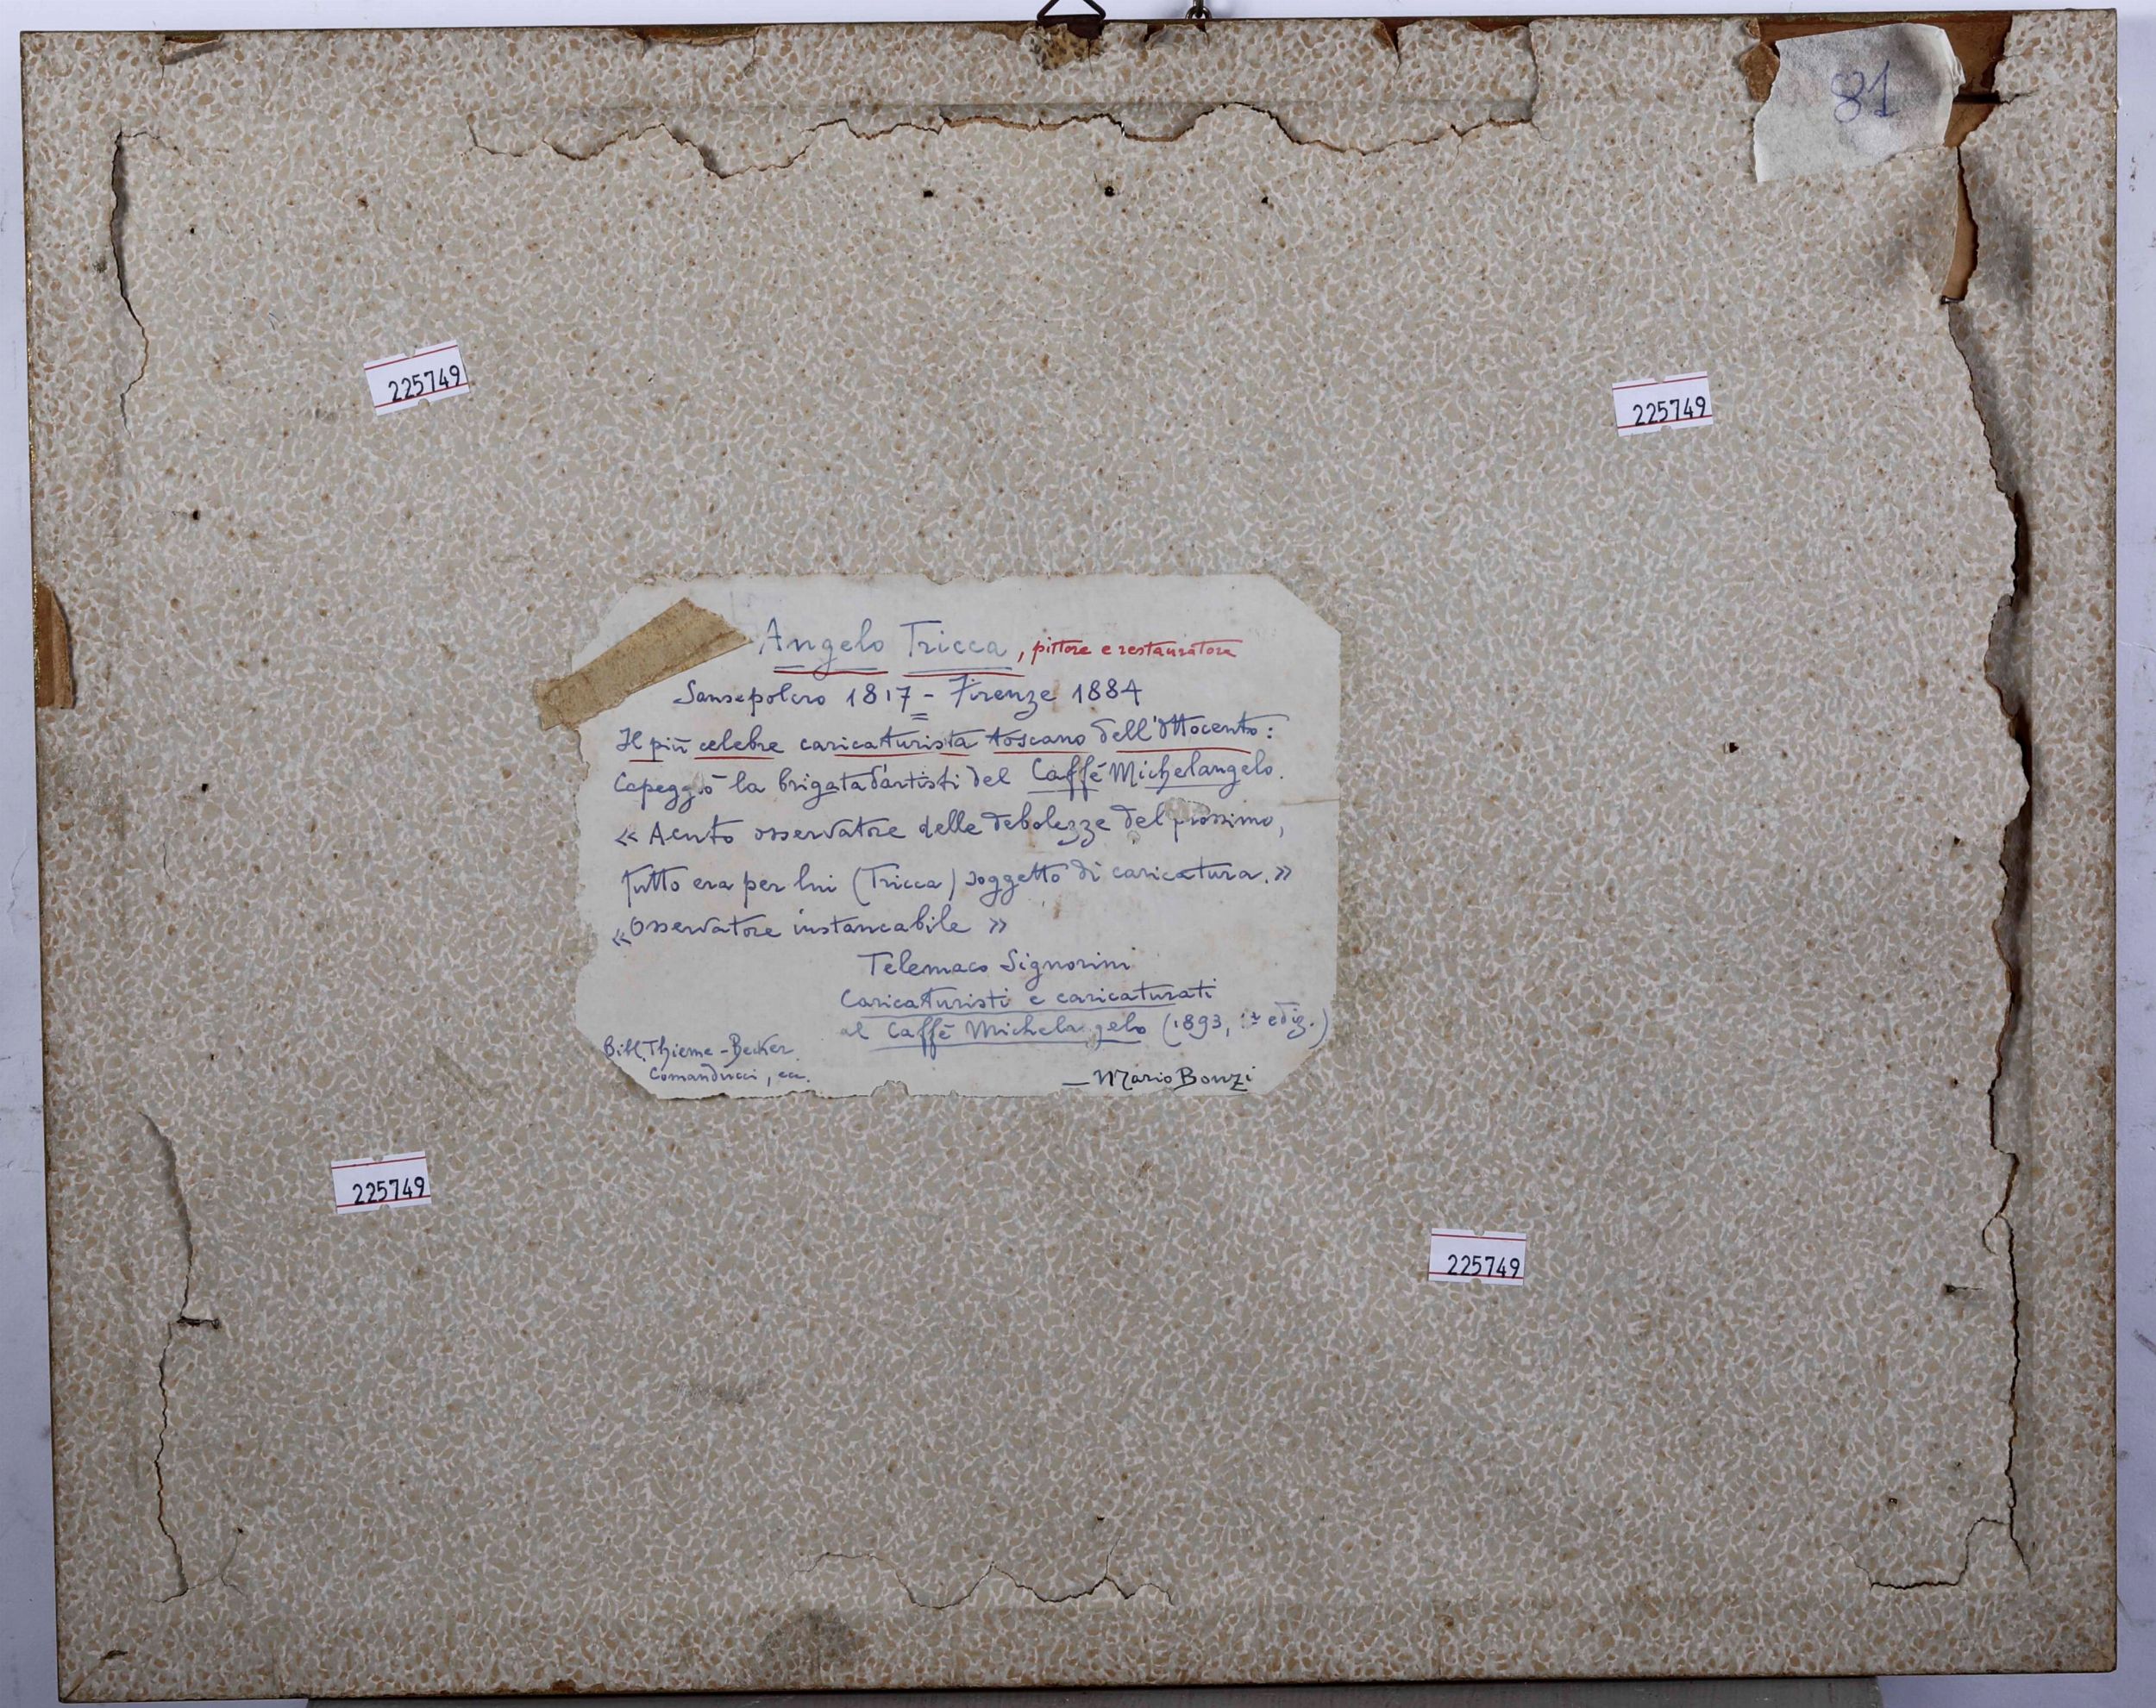 81
225749
225749
Angelo Tricca, pittore e restauratore
Sansepolcro 1817 - Firenze 1884
Il più celebre caricaturista toscano dell'Ottocento:
Capeggiò la brigata d'artisti del Caffè Michelangelo.
« Acuto osservatore delle debolezze del prossimo,
tutto era per lui (Tricca) soggetto di caricatura. »
« Osservatore instancabile »
Telemaco Signorini
Caricaturisti e caricaturati
al Caffè Michelangelo (1893, 1ª ediz.)
Bibl. Thieme-Becker
Comanducci, ecc.
— Mario Bonzi
225749
225749